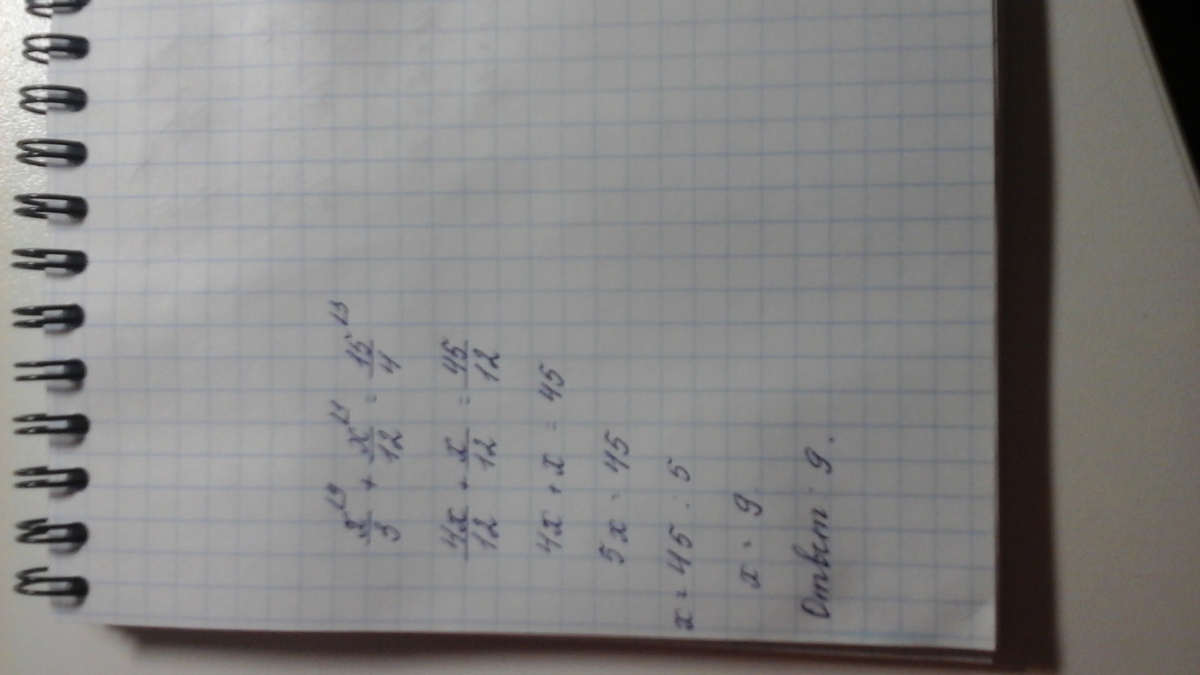 x/3 + x/12 = 15/4
4x/12 + x/12 = 45/12
4x + x = 45
5x = 45
x = 45 : 5
x = 9.
Ответ: 9.